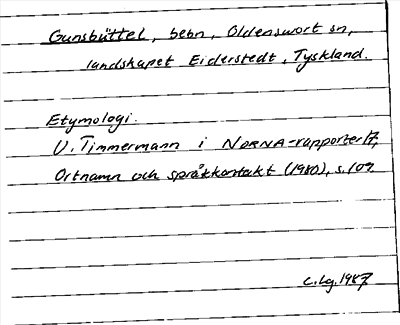 Gunsbüttel, bebn, Oldenswort sn,
landskapet Eiderstedt, Tyskland.
Etymologi.
U. Timmermann i NORNA-rapporter 17,
Ortnamn och språkkontakt (1980), s. 109.
C.Lg. 1987